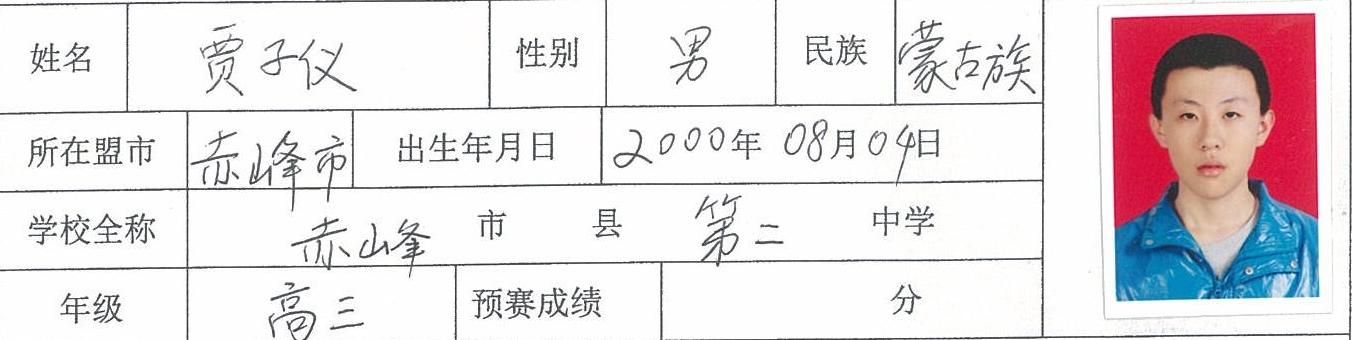 姓名 贾子仪 性别 男 民族 蒙古族
所在盟市 赤峰市 出生年月日 2000年 08月04日
学校全称 赤峰 市 县 第二 中学
年级 高三 预赛成绩 分